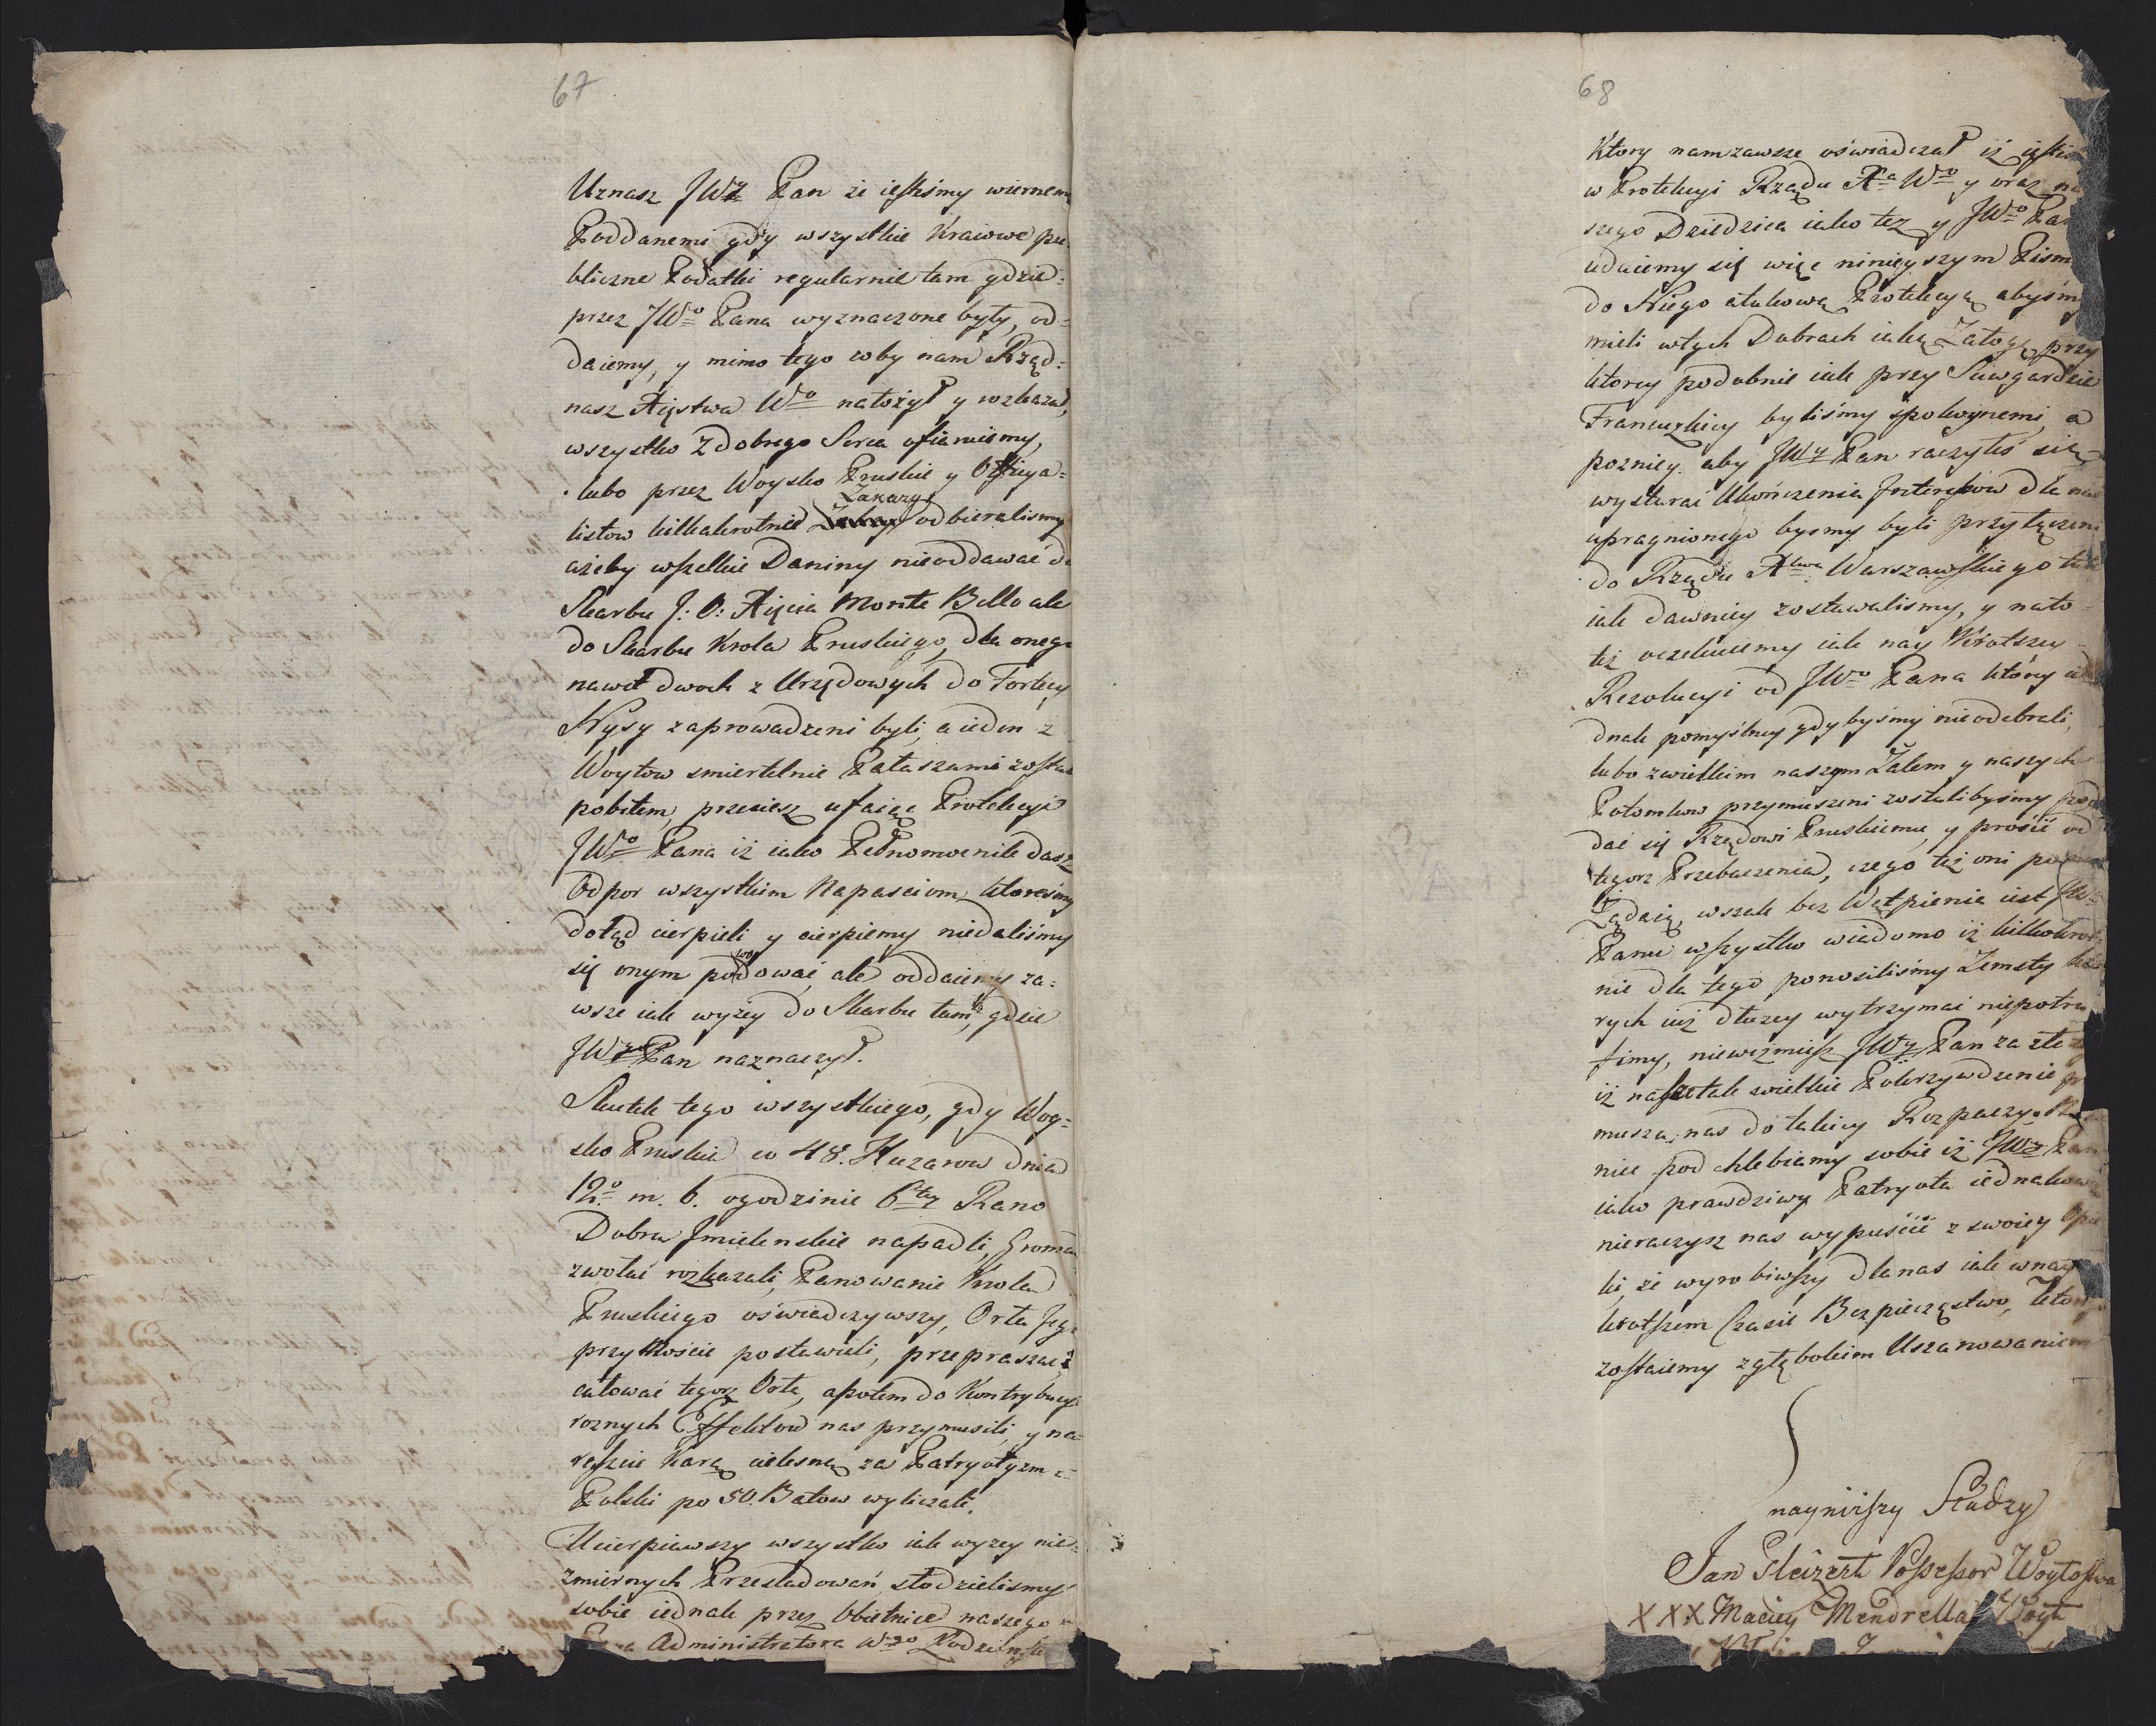 67
Uznasz JWy Pan że iesteśmy wiernem
Poddanemi gdy wszystkie Kraiowe pu
bliczne Podatki regularnie tam gdzie=
przez JWo Pana wyznaczone były, od=
daiemy, y mimo tego coby nam Rząd=
nasz Xięstwa Wo nałożył y rozkazał,
wszystko z dobrego Serca ofiaruiemy,
lubo przez Woysko Pruskie y Offiya=
listow kilkakrotnie Zakazy odbieralismy
ażeby wszelkie Daniny nieoddawać do
Skarbu J: O: Xięcia Monte Bello ale
do Skarbu Krola Pruskiego, dla onego
nawet dwoch z Urzędowych do Fortecy
Nysy zaprowadzeni byli, a ieden z
Woytow smiertelnie Pałaszami został
pobitem, przeciesz ufaiąc Protekcyi
JWo Pana iż iako Pełnomocnik dasz
Odpor wszystkim Napasciom, ktoreśmy
dotąd cierpieli y cierpiemy niedaliśmy
się onym powodować, ale oddaiemy za=
wsze iak wyżey do Skarbu tam, gdzie
JWy Pan naznaczył.
Skutek tego wszystkiego, gdy Woy=
sko Pruskie w 48. Huzarow dnia
12o m. b. ogodzinie 6tey Rano
Dobra Jmielenskie napadli, Groma
zwołać rozkazali, Panowanie Krola
Pruskiego oświadczywszy, Orła Jeg
przy Moście postawili, przepraszać i
całować tegoż Orła, apotem do Kontrybucyi
roznych Effektow nas przymusili, y na
reszcie Karą cielesną za Patryotyzm
Polski po 50. Batow wyliczali.
Ucierpiawszy wszystko iak wyzey nie=
zmiernych Przesladowań słodzielismy
sobie iednak przez Obietnice naszego
Administratora Wgo
68
Ktory nam zawsze oświadczał iż iesteśm
w Protekcyi Rządu Xa Wo y oraz na
szego Dziedzica iako tez y JWo Pan
udaiemy się więc ninieyszym Pism
do Niego otakową Protekcyą abyśmy
mieli wtych Dobrach iaką Załogę, przy
ktorey podobnie iak przy Sawgardzie
Francuzkiey byliśmy spokoynemi, a
pozniey aby JWy Pan raczyłeś się
wystarać Ukończenia Jnteressow dla nas
upragnionego bysmy byli przyłączeni
do Rządu Xtwa Warszawskiego tak
iak dawniey zostawalismy, y nato
też oczekuiemy iak nay Krotszey
Rezolucyi od JWo Pana ktorey ie
dnak pomyślney gdybyśmy nieodebrali,
lubo zwielkim naszym Żalem y naszych
Potomkow przymuszeni zostalibyśmy pod
dać się Rządowi Pruskiemu, y prosić od
tegorz Przebaczenia, czego też oni po
Żądaią, wszak bez Wątpienia iest JW=
Panu wszystko wiadomo iż kilkokrot
nie dla tego ponosiliśmy Zemsty kto
rych iuż dłuzey wytrzymać niepotra
fimy, niewezmiesz JWy Pan za złe
iż nasze tak wielkie Pokrzywdzenie pr
musza, nas do takiey Rozpaczy.
nie pod chlebiamy sobie iż JWy Pan
iako prawdziwy Patryota iednakowo
nieraczysz nas wypuścić z swoiey Opie
ki, że wyrobiwszy dla nas iak wnay
krotszem Czasie Bezpieczęstwo, ktor
zostaiemy zgłębokim Uszanowaniem
nayniższy Słudzy
Jan Possessor Woytostwa
XXX Maciey Mendrella Woyt